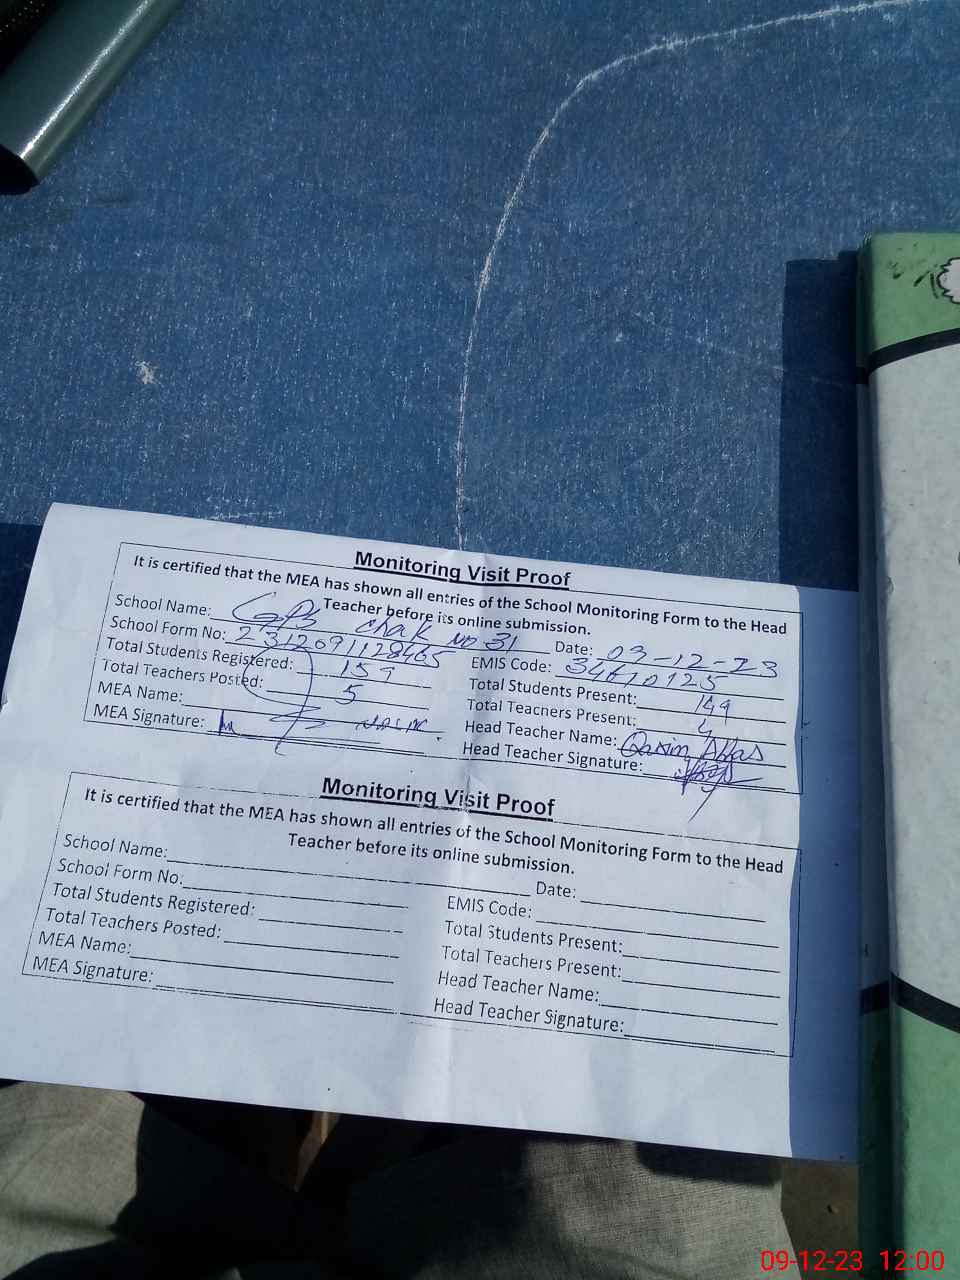 Monitoring Visit Proof
It is certified that the MEA has shown all entries of the School Monitoring Form to the Head
Teacher before its online submission.
School Name: GPS Chak No 31 Date: 09-12-23
School Form No: EMIS Code: 34610125
Total Students Registered: 159 Total Students Present: 149
Total Teachers Posted: 5 Total Teachers Present:
MEA Name: Head Teacher Name: Qasim Abbas
MEA Signature: Head Teacher Signature:
Monitoring Visit Proof
It is certified that the MEA has shown all entries of the School Monitoring Form to the Head
Teacher before its online submission.
School Name: Date:
School Form No: EMIS Code:
Total Students Registered: Total Students Present:
Total Teachers Posted: Total Teachers Present:
MEA Name: Head Teacher Name:
MEA Signature: Head Teacher Signature:
09-12-23 12:00